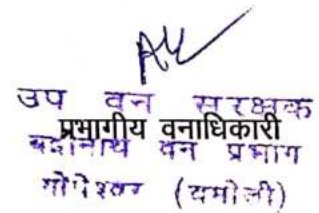 उप वन संरक्षक
प्रभागीय वनाधिकारी
बद्रीनाथ वन प्रभाग
गोपेश्वर (चमोली)